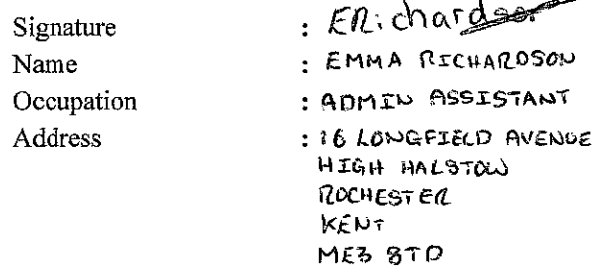 Signature : ERichardson
Name : EMMA RICHARDSON
Occupation : ADMIN ASSISTANT
Address : 16 LONGFIELD AVENUE
HIGH HALSTOW
ROCHESTER
KENT
ME3 8TD